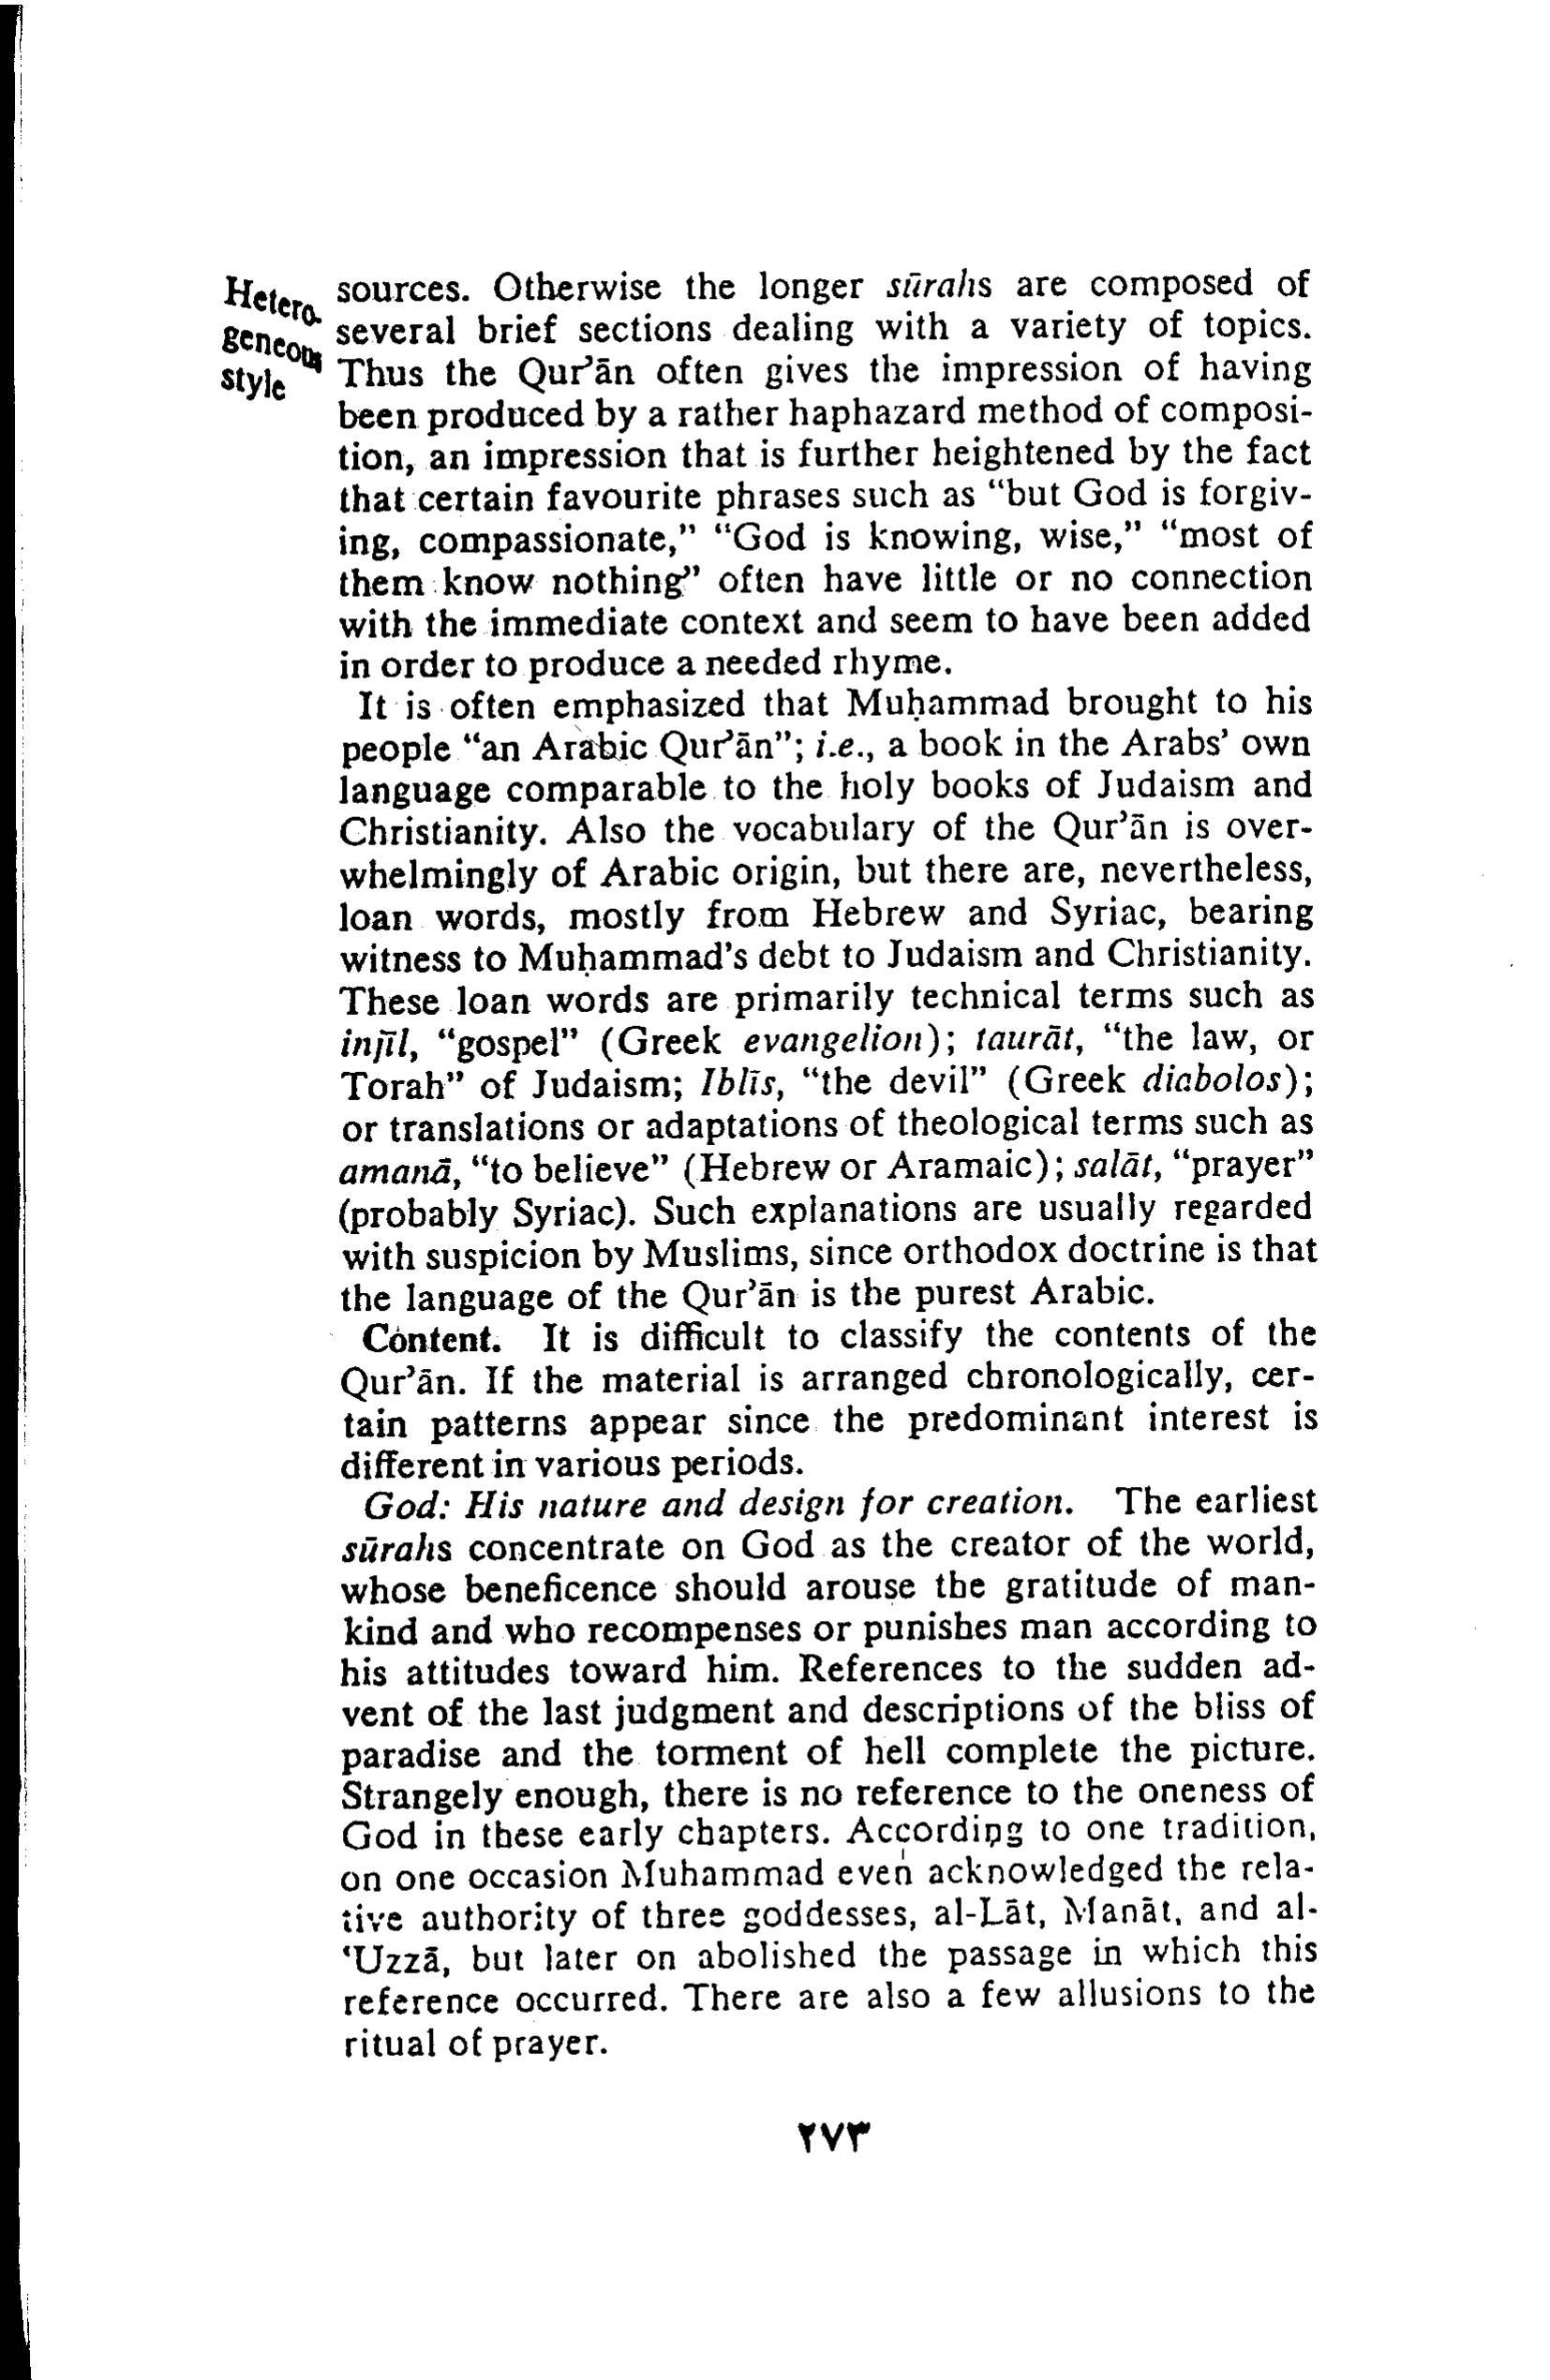 Hetero-
geneous
style
sources. Otherwise the longer sūrahs are composed of
several brief sections dealing with a variety of topics.
Thus the Qur’ān often gives the impression of having
been produced by a rather haphazard method of composi-
tion, an impression that is further heightened by the fact
that certain favourite phrases such as “but God is forgiv-
ing, compassionate,” “God is knowing, wise,” “most of
them know nothing” often have little or no connection
with the immediate context and seem to have been added
in order to produce a needed rhyme.
It is often emphasized that Muḥammad brought to his
people “an Arabic Qur’ān”; i.e., a book in the Arabs’ own
language comparable to the holy books of Judaism and
Christianity. Also the vocabulary of the Qur’ān is over-
whelmingly of Arabic origin, but there are, nevertheless,
loan words, mostly from Hebrew and Syriac, bearing
witness to Muḥammad’s debt to Judaism and Christianity.
These loan words are primarily technical terms such as
injīl, “gospel” (Greek evangelion); taurāt, “the law, or
Torah” of Judaism; Iblīs, “the devil” (Greek diabolos);
or translations or adaptations of theological terms such as
amanā, “to believe” (Hebrew or Aramaic); salāt, “prayer”
(probably Syriac). Such explanations are usually regarded
with suspicion by Muslims, since orthodox doctrine is that
the language of the Qur’ān is the purest Arabic.
Content. It is difficult to classify the contents of the
Qur’ān. If the material is arranged chronologically, cer-
tain patterns appear since the predominant interest is
different in various periods.
God: His nature and design for creation. The earliest
sūrahs concentrate on God as the creator of the world,
whose beneficence should arouse the gratitude of man-
kind and who recompenses or punishes man according to
his attitudes toward him. References to the sudden ad-
vent of the last judgment and descriptions of the bliss of
paradise and the torment of hell complete the picture.
Strangely enough, there is no reference to the oneness of
God in these early chapters. According to one tradition,
on one occasion Muhammad even acknowledged the rela-
tive authority of three goddesses, al-Lāt, Manāt, and al-
‘Uzzā, but later on abolished the passage in which this
reference occurred. There are also a few allusions to the
ritual of prayer.
٢٧٣